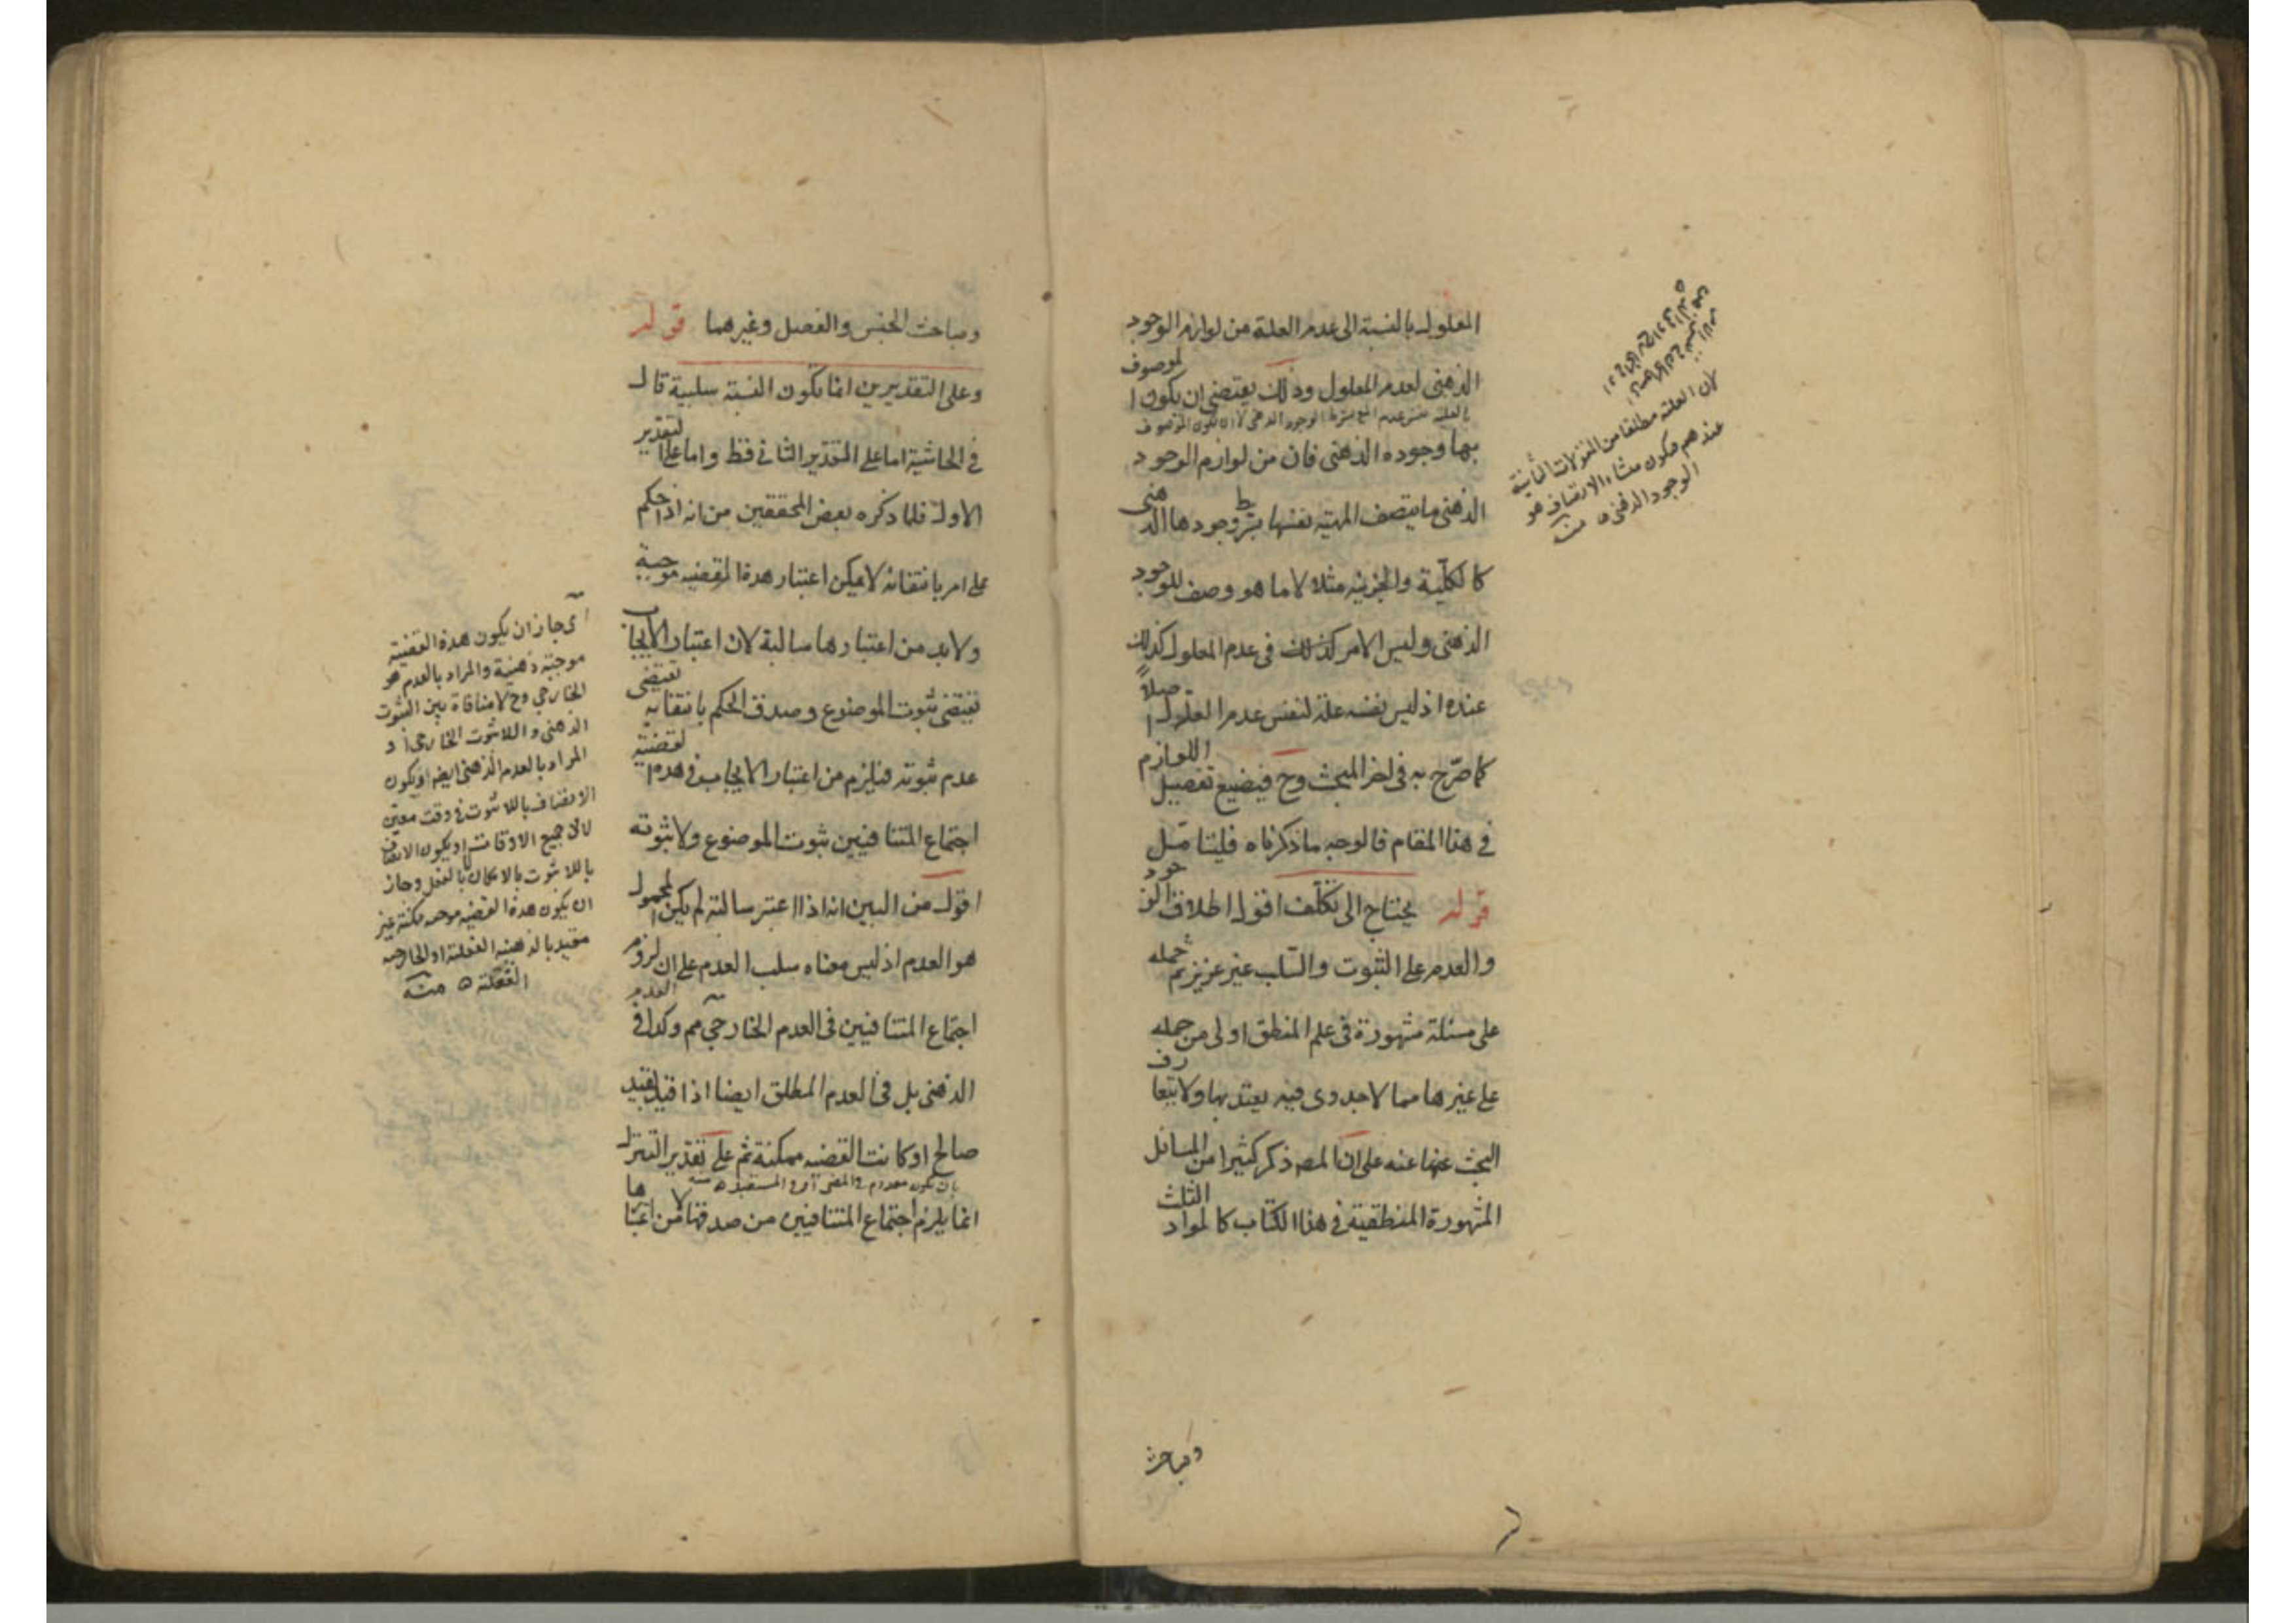 المعلول بالنسبة الى عدم العلة من لوازم الوجود
الذهنى لعدم المعلول وذلك يقتضى ان يكون الموصوف
بها وجوده الذهنى فان من لوازم الوجود
الذهنى ما يتصف المهية بنفسها بشرط وجودها الذهنى
كالكلية والجزئية مثلا لا ما هو وصف للوجود
الذهنى وليس الامر كذلك فى عدم المعلول كذلك
عنده اذ ليس نفسه علة لنفس عدم المعلول اصلاً
كما صرّح به فى اخر المبحث وح فيضيع تفصيل اللوازم
فى هذا المقام فالوجه ما ذكرناه فليتامّل
قوله يحتاج الى تكلّف اقول اطلاق الوجود
والعدم على الثبوت والسّلب غير عزيز ثم حمله
على مسئلة مشهورة فى علم المنطق اولى من حمله
على غيرها مما لا جدوى فيه يعتد بها ولا يتعارف
البحث عنها عنه على ان المص ذكر كثيرا من المسائل
المشهورة المنطقية فى هذا الكتاب كالمواد الثلث
ومباحث
لان العلة مطلقا من المعقولات الثانية
عندهم فيكون منشاء الاتصاف هو
الوجود الذهنى ه منه
ومباحث الجنس والفصل وغيرهما قوله
وعلى التقديرين انما يكون النسبة سلبية قال
فى الحاشية اما على التقدير الثانى فقط واما على التقدير
الاول فلما ذكره بعض المحققين من انه اذا حكم
على امر بانتفائه لا يمكن اعتبار هذه القضيه موجبة
ولابد من اعتبارها سالبة لان اعتبار الايجاب
يقتضى ثبوت الموضوع وصدق الحكم بانتفائه يقتضى
عدم ثبوته فيلزم من اعتبار الايجاب فى هذه القضية
اجتماع المتنافيين ثبوت الموضوع ولا ثبوته
اقول من البين انه اذا اعتبر سالبة لم يكن المحمول
هو العدم اذ ليس معناه سلب العدم على ان لزوم
اجتماع المتنافيين فى العدم الخارجي مم وكذا فى العدم
الذهنى بل فى العدم المطلق ايضا اذا قيد بقيد
صالح او كانت القضيه ممكنة ثم على تقدير التنزل
بان يكون معدوم فى الماضى او فى المستقبل ه منه
انما يلزم اجتماع المتنافيين من صدقها لا من اعتبارها
اى جاز ان يكون هذه القضية
موجبة ذهنية والمراد بالعدم هو
الخارجي وح لا منافاة بين الثبوت
الذهنى واللاثبوت الخارجى او
المراد بالعدم الذهنى ايضا ويكون
الاتصاف باللاثبوت فى وقت معيّن
لا فى جميع الاوقات او يكون الاتصاف
باللاثبوت بالامكان لا بالفعل وجاز
ان يكون هذه القضيه موجبه ممكنة غير
مقيد بالذهنيه الفعلية او الخارجيه
الفعلية ه منه